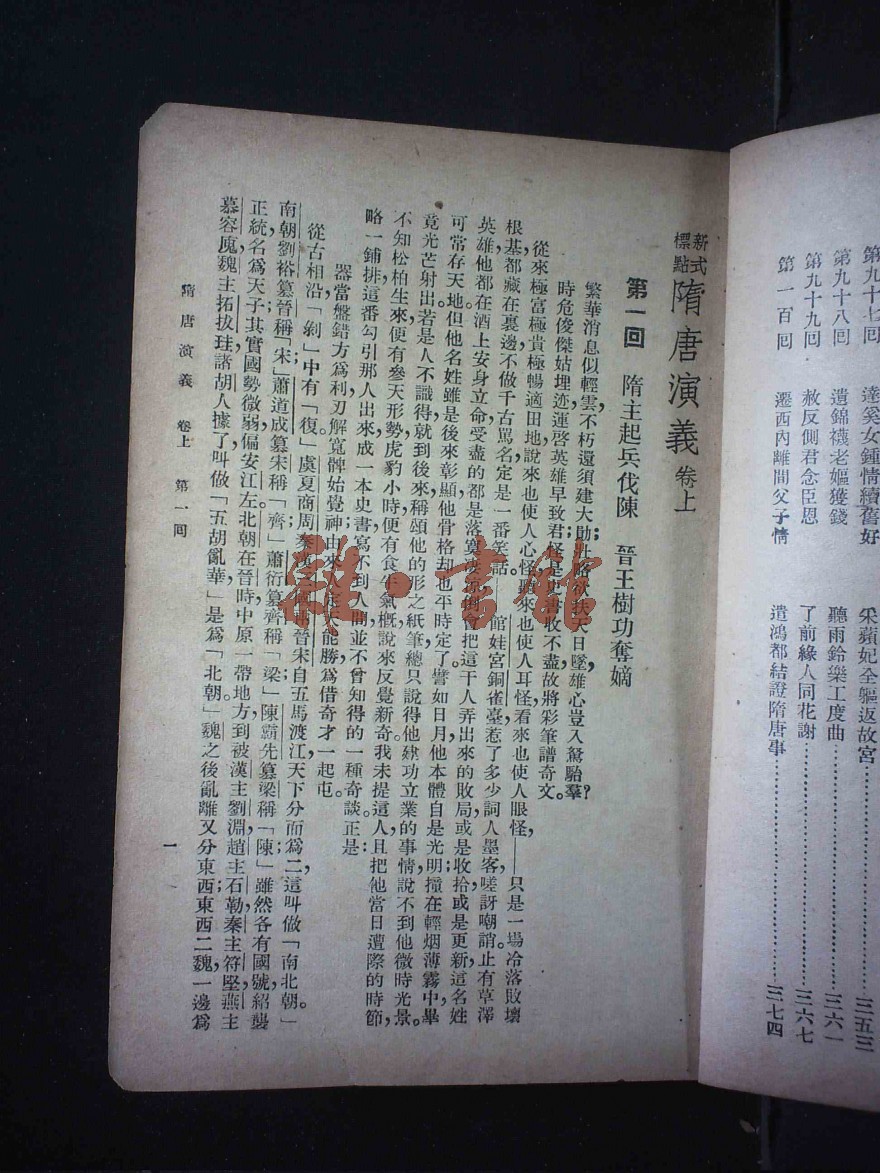 第九十七回 達奚女鍾情續舊好 采蘋妃全軀返故宮……三五三
第九十八回 遺錦襪老嫗獲錢 聽雨鈴樂工度曲……三六一
第九十九回 赦反側君念臣恩 了前緣人同花謝……三六七
第一百回 遷西內離間父子情 遣鴻都結證隋唐事……三七四
新式標點 隋唐演義 卷上
第一回 隋主起兵伐陳 晉王樹功奪嫡
繁華消息似輕雲不朽還須建大勛壯略欲扶天日墜,雄心豈入駑駘羣?
時危俊傑姑埋迹,運啓英雄早致君怪是史書收不盡故將彩筆譜奇文。
從來極富極貴極暢適田地說來也使人心怪聽來也使人耳怪看來也使人眼怪,——只是一場冷落敗壞
根基都藏在裏邊不做千古罵名定是一番笑話。館娃宮銅雀臺惹了多少詞人墨客嗟訝嘲誚。止有草澤
英雄他都在酒上安身立命受盡的都是落寞淒涼倒會把這干人弄出來的敗局或是收拾或是更新,這名姓
可常存天地。但他名姓雖是後來彰顯他骨格却也平時定了譬如日月他本體自是光明撞在輕烟薄霧中畢
竟光芒射出若是人不識得就到後來稱頌他的形之紙筆總只說得他建功立業的事情說不到他微時光景。
不知松柏生來便有參天形勢虎豹小時便有食牛氣槪說來反覺新奇。我未提這人且把他當日遭際的時節,
略一鋪排這番勾引那人出來成一本史書寫不到人間並不曾知得的一種奇談正是
器當盤錯方爲利,刃解寬髀始覺神由來人定天能勝,爲借奇才一起屯。
從古相沿「剝」中有「復」虞夏商周秦漢三國兩晉宋自五馬渡江天下分而爲二,這叫做「南北朝。」
南朝劉裕篡晉稱「宋」;蕭道成篡宋稱「齊」;蕭衍篡齊稱「梁」;陳霸先篡梁稱「陳」雖然各有國號紹襲
正統名爲天子其實國勢微弱偏安江左。北朝在晉時中原一帶地方到被漢主劉淵,趙主石勒秦主符堅,燕主
慕容廆魏主拓拔珪諸胡人據了,叫做「五胡亂華」是爲「北朝。」魏之後亂離又分東西;東西二魏,一邊爲
隋唐演義 卷上 第一回
一
雜·書館